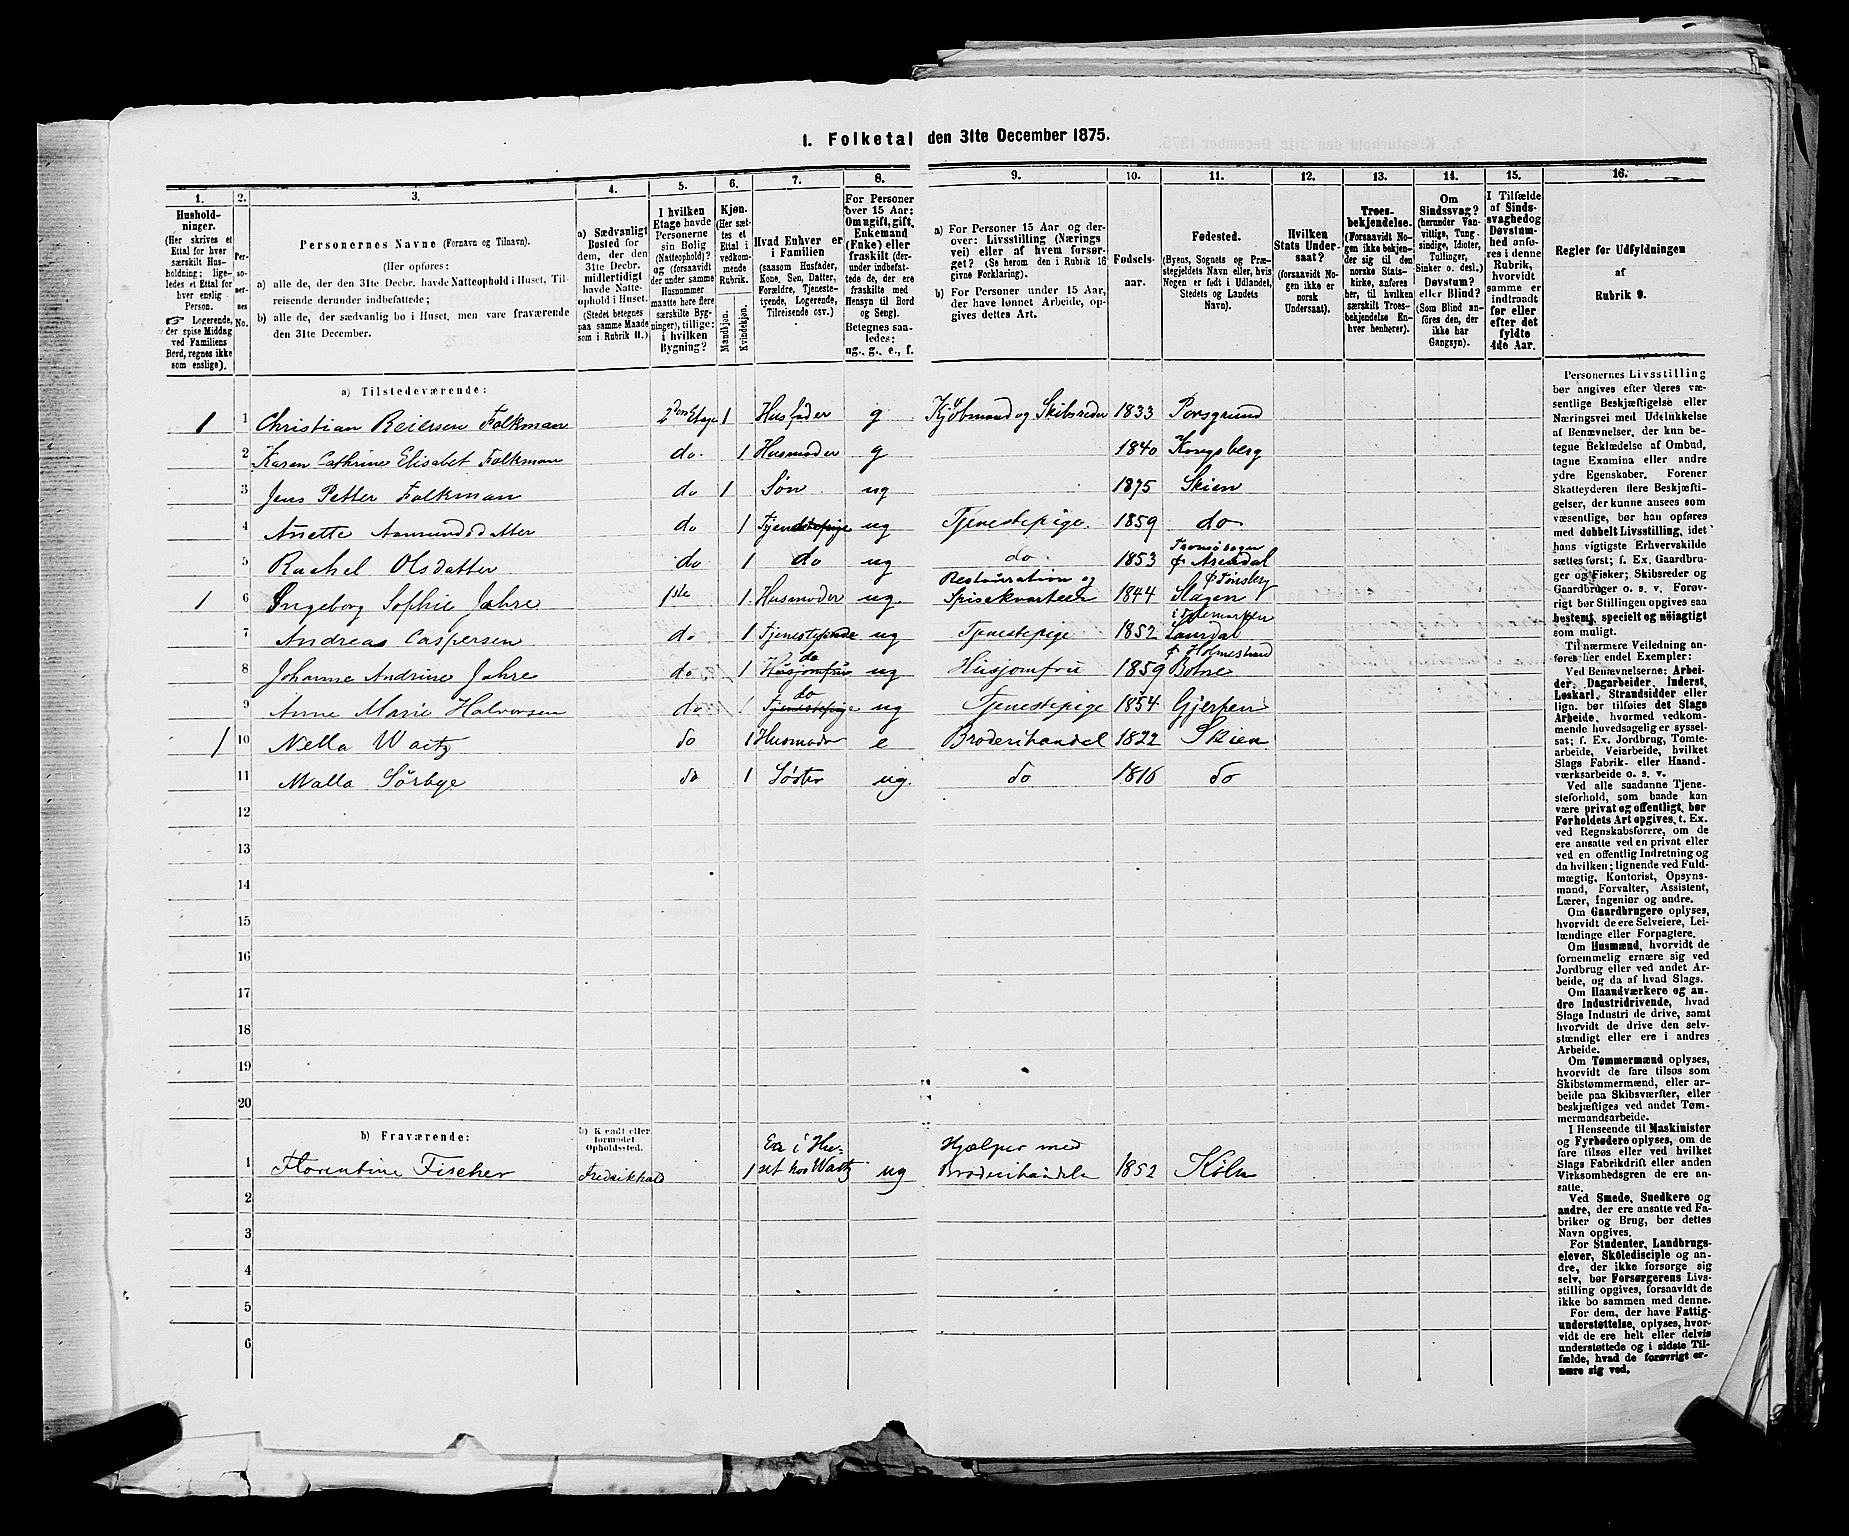 1. Folketal den 31te December 1875.
1. 2. 3. 4. 5. 6. 7. 8. 9. 10. 11. 12. 13. 14. 15. 16.
Hushold-
ninger.
(Her skrives et
Ettal for hver
særskilt Hus-
holdning; lige-
ledes et Ettal for
hver enslig
Person.
☞ Logerende,
der spise Middag
ved Familiens
Bord, regnes ikke
som enslige).
Per-
so-
ner-
nes
No.
Personernes Navne (Fornavn og Tilnavn).
(Her opføres:
a) alle de, der den 31te Decbr. havde Natteophold i Huset, Til-
reisende derunder indbefattede;
b) alle de, der sædvanlig bo i Huset, men vare fraværende
den 31te December.
a) Sædvanligt
Bosted for
dem, der den
31te Decbr.
midlertidigt
havde Natte-
ophold i Huset.
(Stedet betegnes
paa samme Maade
som i Rubrik 11.)
I hvilken
Etage havde
Personerne
sin Bolig
(Natteophold)?
og (forsaavidt
der under samme
Husnummer
maatte høre flere
særskilte Byg-
ninger), tillige:
i hvilken
Bygning?
Kjøn.
(Her sæt-
tes et
Ettal i
vedkom-
mende
Rubrik.)
Mandkjøn.
Kvindekjøn.
Hvad Enhver er
i Familien
(saasom Husfader,
Kone, Søn, Datter,
Forældre, Tjeneste-
tyende, Logerende,
Tilreisende osv.)
For Personer
over 15 Aar:
Om ugift, gift,
Enkemand
(Enke) eller
fraskilt (der-
under indbefat-
tede de, der ere
fraskilte med
Hensyn til Bord
og Seng).
Betegnes saa-
ledes:
ug., g., e., f.
a) For Personer 15 Aar og der-
over: Livsstilling (Nærings
vei) eller af hvem forsør-
get? (Se herom den i Rubrik 16
givne Forklaring).
b) For Personer under 15 Aar,
der have lønnet Arbeide, op-
gives dettes Art.
Fødsels-
aar.
Fødested.
(Byens, Sognets og Præ-
stegjeldets Navn eller, hvis
Nogen er født i Udlandet,
Stedets og Landets
Navn).
Hvilken
Stats Under-
saat?
(forsaavidt No-
gen ikke er
norsk
Undersaat).
Troes-
bekjendelse.
(Forsaavidt No-
gen ikke bekjen-
der sig til den
norske Stats-
kirke, anføres
her, til hvilken
særskilt Troes-
bekjendelse En-
hver henhører).
Om
Sindssvag?
(herunder Van-
vittige, Tung-
sindige, Idioter,
Tullinger,
Sinker o. desl.)
Døvstum?
eller Blind?
(Som Blind an-
føres den, der
ikke har
Gangsyn).
I Tilfælde
af Sinds-
svaghed og
Døvstum-
hed anfø-
res i denne
Rubrik,
hvorvidt
samme er
indtraadt
før eller
efter det
fyldte
4de Aar.
Regler for Udfyldningen
af
Rubrik 9.
a) Tilstedeværende:
1 1 Christian Reiersen Falkman 2den Etage 1 Husfader g Kjøbmand og Skibsreder 1833 Porsgrund
2 Karen Cathrine Elisabet Falkman do. 1 Husmoder g 1840 Kongsberg
3 Jens Petter Falkman do 1 Søn ug 1875 Skien
4 Anette Aamundsdatter do 1 Tjenestepige ug Tjenestepige. 1859 do
5 Rachel Olsdatter do 1 do ug do. 1853 Tromøsogn ⌀ Arendal
1 6 Ingeborg Sophie Jahre 1ste 1 Husmoder ug. Restauration og Spisekvarteer 1844 Slagen ⌀ Tønsberg
7 Andreas Caspersen do. 1 Tjenestepende ug Tjenestepige 1852 i Thelemarken Laurdal
8 Johanne Andrine Jahre do 1 Husjomfru do ug Husjomfru 1859 ⌀ Holmestrand Botne
9 Anne Marie Halvorsen do 1 Tjenestepige do ug Tjenestepige 1854 Gjerpen
1 10 Nella Waitz do 1 Husmoder e Broderihandel 1822 Skien
11 Malla Sørbye do 1 Søster ug. do 1816 do
12
13
14
15
16
17
18
19
20
b) Fraværende:
b) Kjendt eller
formodet
Opholdssted.
1 Florentine Fischer Fredrikhald 1 Er i Hu-
set hos Waitz ug Hjælper med
Broderihandeln 1852 Køln
2
3
4
5
6
Personernes Livsstilling
bør angives efter deres væ-
sentlige Beskjæftigelse eller
Næringsvei med Udelukkelse
af Benævnelser, der kun be-
tegne Beklædelse af Ombud,
tagne Examina eller andre
ydre Egenskaber. Forener
Skatteyderen flere Beskjæfti-
gelser, der kunne ansees som
væsentlige, bør han opføres
med dobbelt Livsstilling, idet
hans vigtigste Erhvervskilde
sættes først; f. Ex. Gaardbru-
ger og Fisker; Skibsreder og
Gaardbruger o. s. v. Forøv-
rigt bør Stillingen opgives saa
bestemt, specielt og nøiagtigt
som muligt.
Til nærmere Veiledning an-
føres her endel Exempler:
Ved Benævnelserne: Arbei-
der, Dagarbeider, Inderst,
Løskarl, Strandsidder eller
lign. bør tilføies det Slags
Arbeide, hvormed vedkom-
mende hovedsagelig er syssel-
sat; f. Ex. Jordbrug, Tomte-
arbeide, Veiarbeide, hvilket
Slags Fabrik- eller Haand-
værksarbeide o. s. v.
Ved alle saadanne Tjene-
steforhold, som baade kan
være privat og offentligt, bør
Forholdets Art opgives, t. Ex.
ved Regnskabsførere, om de
ere ansatte ved en privat eller
ved en offentlig Indretning og
da hvilken; lignende ved Fuld-
mægtig, Kontorist, Opsyns-
mand, Forvalter, Assistent,
Lærer, Ingeniør og andre.
Om Gaardbrugere oplyses,
hvorvidt de ere Selveiere, Lei-
lændinge eller Forpagtere.
Om Husmænd, hvorvidt de
fornemmelig ernære sig ved
Jordbrug eller ved andet Ar-
beide, og da af hvad Slags.
Om Haandværkere og an-
dre Industridrivende, hvad
Slags Industri de drive, samt
hvorvidt de drive den selv-
stændigt eller ere i andres
Arbeide.
Om Tømmermænd oplyses,
hvorvidt de fare tilsøs som
Skibstømmermænd, eller ar-
beide paa Skibsværfter, eller
beskjæftiges ved andet Tøm-
mermandsarbeide.
I Henseende til Maskinister
og Fyrbødere oplyses, om de
fare tilsøs eller ved hvilket
Slags Fabrikdrift eller anden
Virksomhedsgren de ere an-
satte.
Ved Smede, Snedkere og
andre, der ere ansatte ved Fa-
briker og Brug, bør dettes
Navn opgives.
For Studenter, Landbrugs-
elever, Skoledisciple og an-
dre, der ikke forsørge sig
selv, bør Forsørgerens Livs-
stilling opgives, forsaavidt de
ikke bo sammen med denne.
For dem, der have Fattig-
understøttelse, oplyses, hvor-
vidt de ere helt eller delvis
understøttede og i sidste Til-
fælde, hvad de forøvrigt er-
nære sig ved.